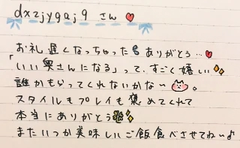 dxzjygaj9 さん
お礼 遅くなっちゃった ありがとう…
「いい奥さんになる」って、すごく嬉しい
誰かもらってくれないかな〜 。
スタイルもプレイも 褒めてくれて
本当にありがとう
またいつか美味しいご飯食べさせてね〜♪